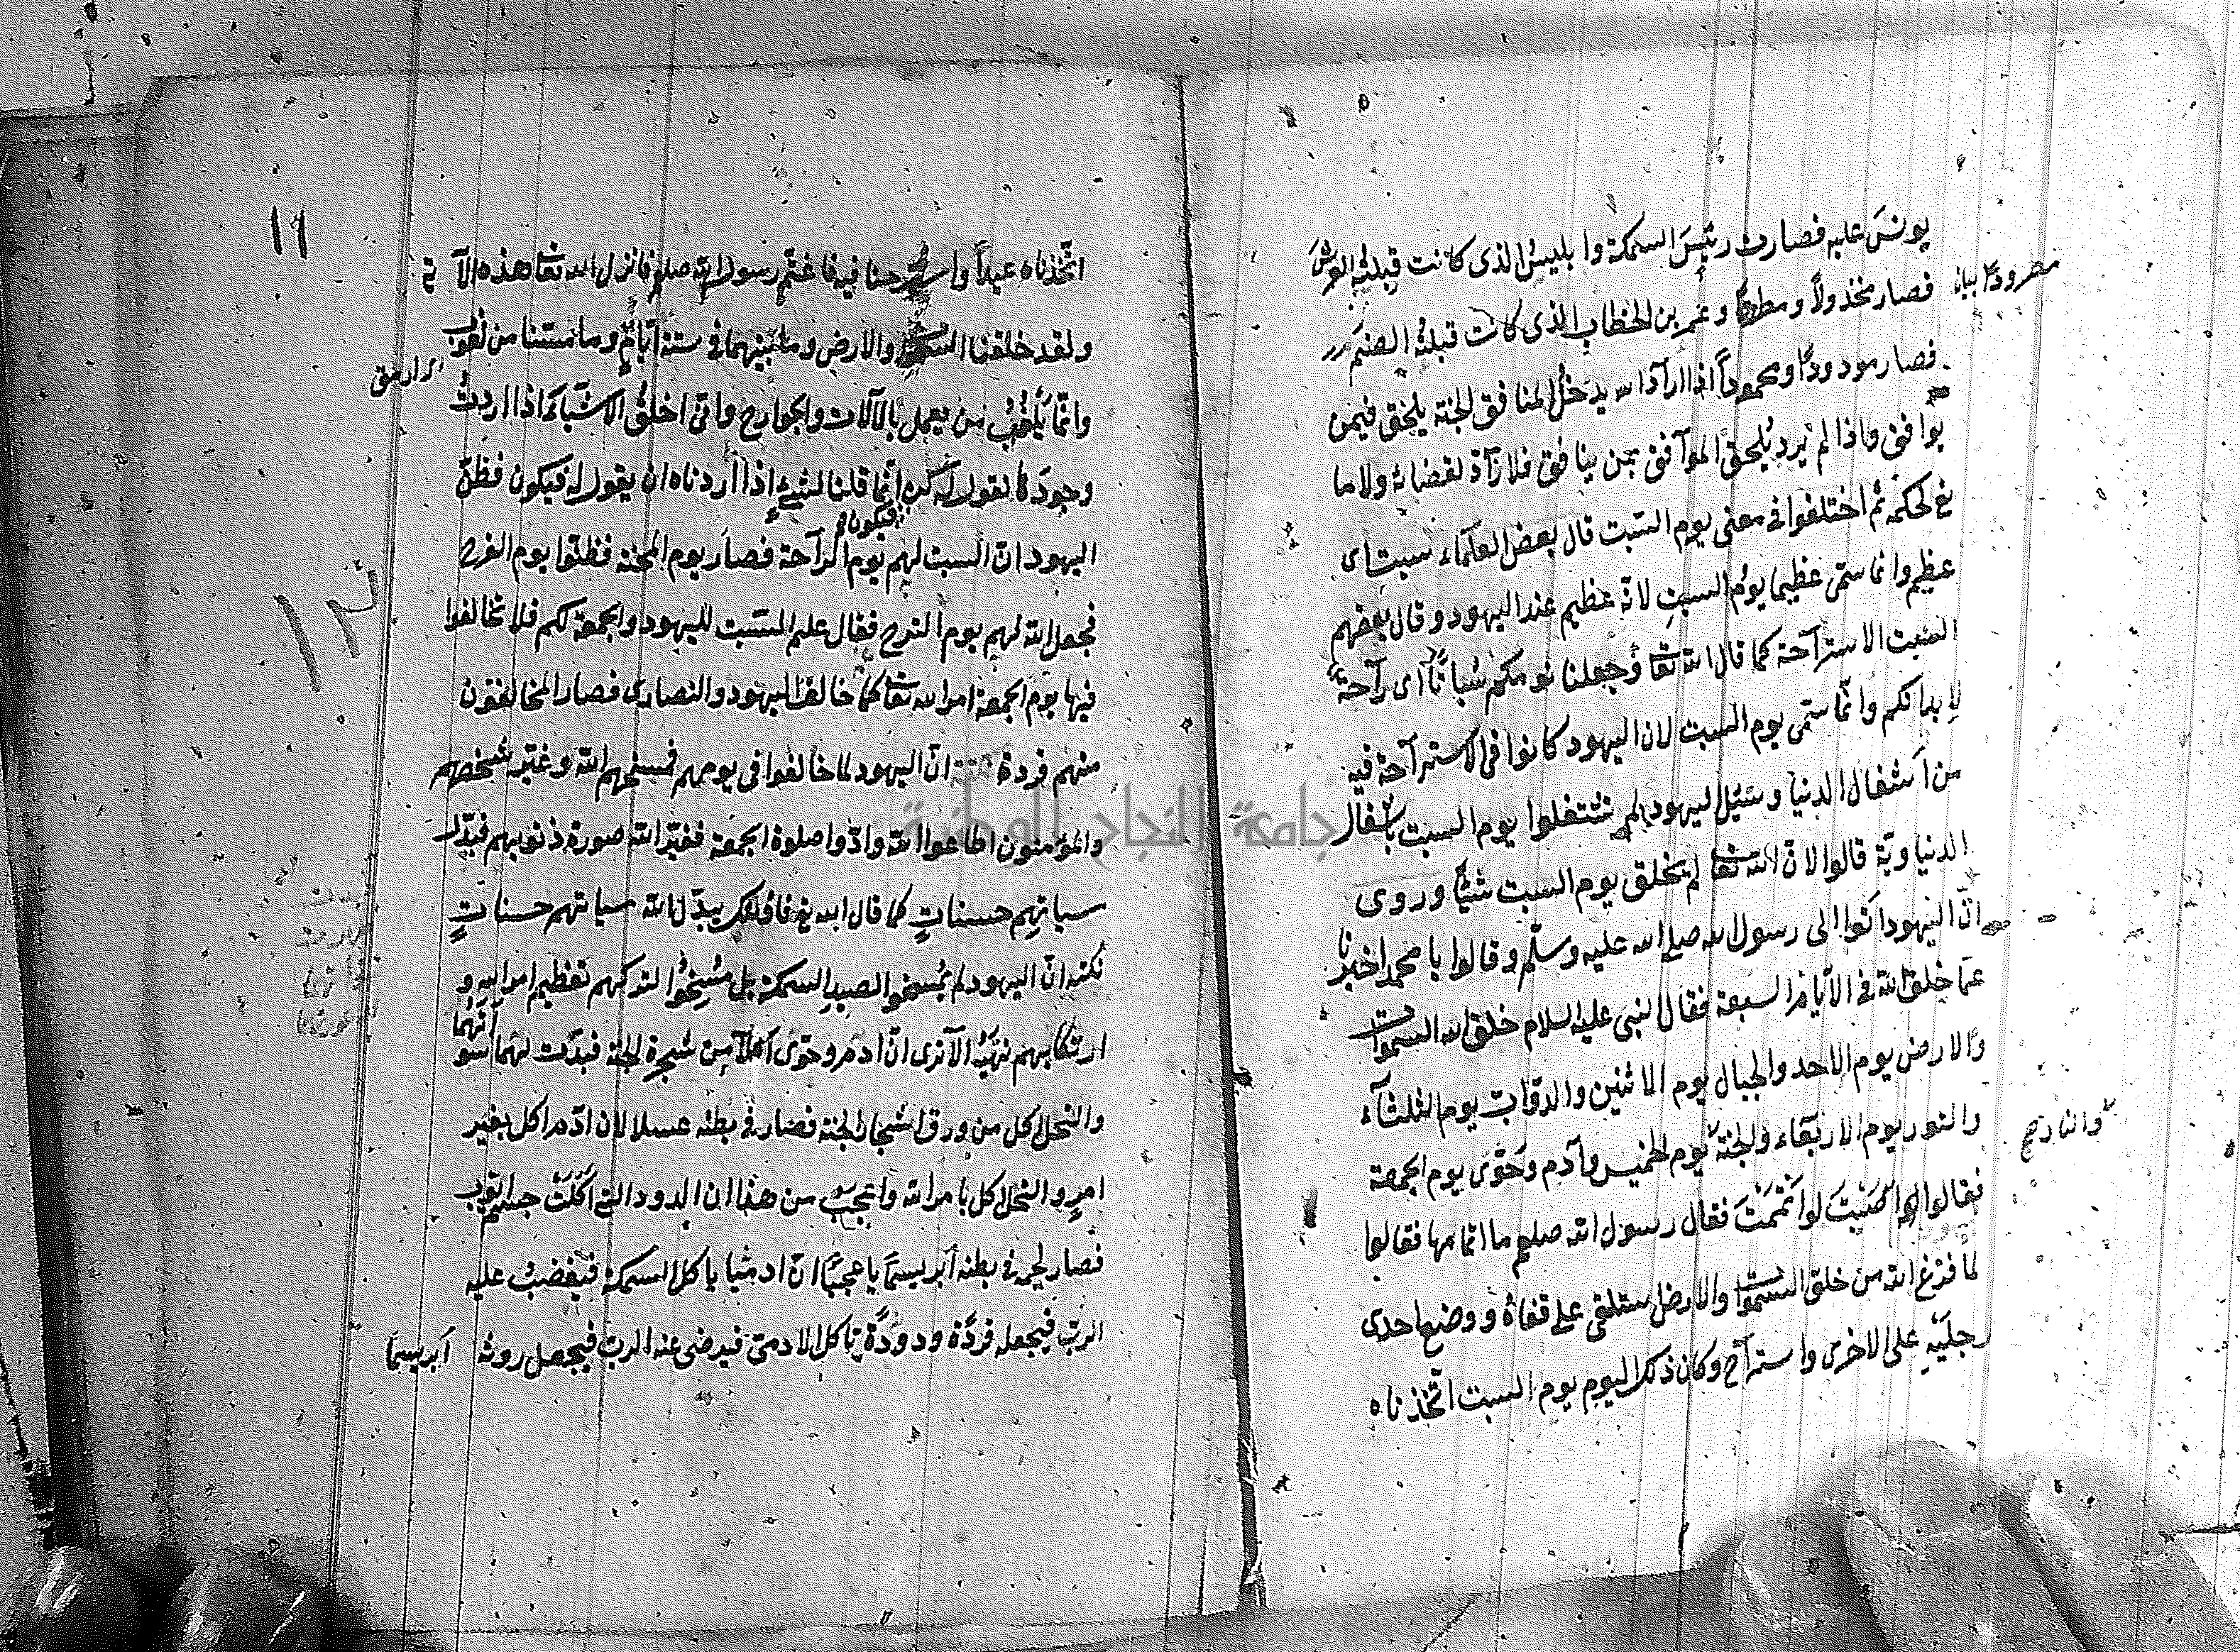 يونس عليه فصارت رئيس السمكة وابليس الذى كانت قبلته العرش
فصار مخذولاً ومطرودا وعمر بن الخطاب الذى كانت قبلته الصنم
فصار مودودًا ومحموداً اذا اراد ان يدخل المنافق الجنة يلحق فيمن
يوافق واذا لم يرد يلحق الموآفق بمن ينافق فلا رآدّ لقضائه ولا ما
نع لحكمه ثم اختلفوا فى معنى يوم السبت قال بعض العلمآء سبت اى
عظيم وانما سمّى عظيما يوم السبت لانّه عظيم عند اليهود وقال بعضهم
السبت الاسترآحة كما قال الله تعا وجعلنا نومكم سُباتًا اى رآحة
لابدانكم وانّما سمّى يوم السبت لان اليهود كانوا فى الاسترآحة فيه
من اشغال الدنيا وسئل اليهود لم تشتغلوا يوم السبت باشغال
الدنياويّة قالوا لانّ الله تعا لم يخلق يوم السبت شيئًا وروى
انّ اليهود اتوا الى رسول الله صلى الله عليه وسلّم وقالوا يا محمد اخبرنا
عمّا خلق الله فى الايام السبعة فقال النبى عليه السلام خلق الله السموات
والارض يوم الاحد والجبال يوم الاثنين والدوّاب يوم الثلثآء
والنور يوم الاربعاء والجنة يوم الخميس وآدم وحوّى يوم الجمعة
والنار صح
فقالوا اصبت لو اتممت فقال رسول الله صلعم ما اتمامها فقالوا
لما فرغ الله من خلق السموا والارض ستلقى على قفاه ووضع احدى
رجليه على الاخرى واسترآح وكان ذلك اليوم يوم السبت اتّخذناه
١١
اتّخذناه عيداً واسترحنا فيه فاغتمّ رسول الله صلعم فانزل الله تعا هذه الآية
ولقد خلقنا السموا والارض وما بينهما فى ستة ايّام وما مسّنا من لغوب
وانّما يلغب من يعمل بالآلات والجوارح وانى اخلق الاشياء اذا اردت
وجودها نقول له كن انّما قولنا لشئ اذا اردناه ان يقول له فيكون فظنّ
فيكون
اليهود انّ السبت لهم يوم الرآحة فصار يوم المحنة فظنّوا يوم الفرح
١٢
فجعل الله لهم يوم الترح فقال علم السبت لليهود والجمعة لكم فلا تخالفوا
فيها يوم الجمعة امر الله تعا كما خالفا اليهود والنصارى فصار المخالفون
منهم قردة انّ اليهود لما خالفوا فى يومهم فمسخهم الله وغيّر شخصهم
والمؤمنون اطاعوا الله وادّوا صلوة الجمعة فغيّر الله صورة ذنوبهم فبدّل
سياتهم حسنات كما قال الله تع فاولئك يبدّل الله سياتهم حسنات
نكتة انّ اليهود لم يمسخوا لصيد السمكة بل مُسِخُوا لتركهم تعظيم امر الله و
ارتكابهم نهيه الا ترى انّ ادم وحوّى اكلا من شجرة الجنة فبدت لهما سو
اتهما
والنحل كل من ورق اشجار الجنة فصار فى بطنه عسلا لان ادم اكل بغير
امرٍ والنحل كل بامر الله واعجب من هذا ان الدود التى اكلت جسد ايوب
فصار لحمه فى بطنه ابريسمًا يا عجبًا انّ ادميّا ياكل السمكة فيغضب عليه
الربّ فيجعله قردة ودودة تاكل الادمىّ فيرضى عنه الربّ فيجعل روثه ابريسما
جامعة النجاح الوطنية